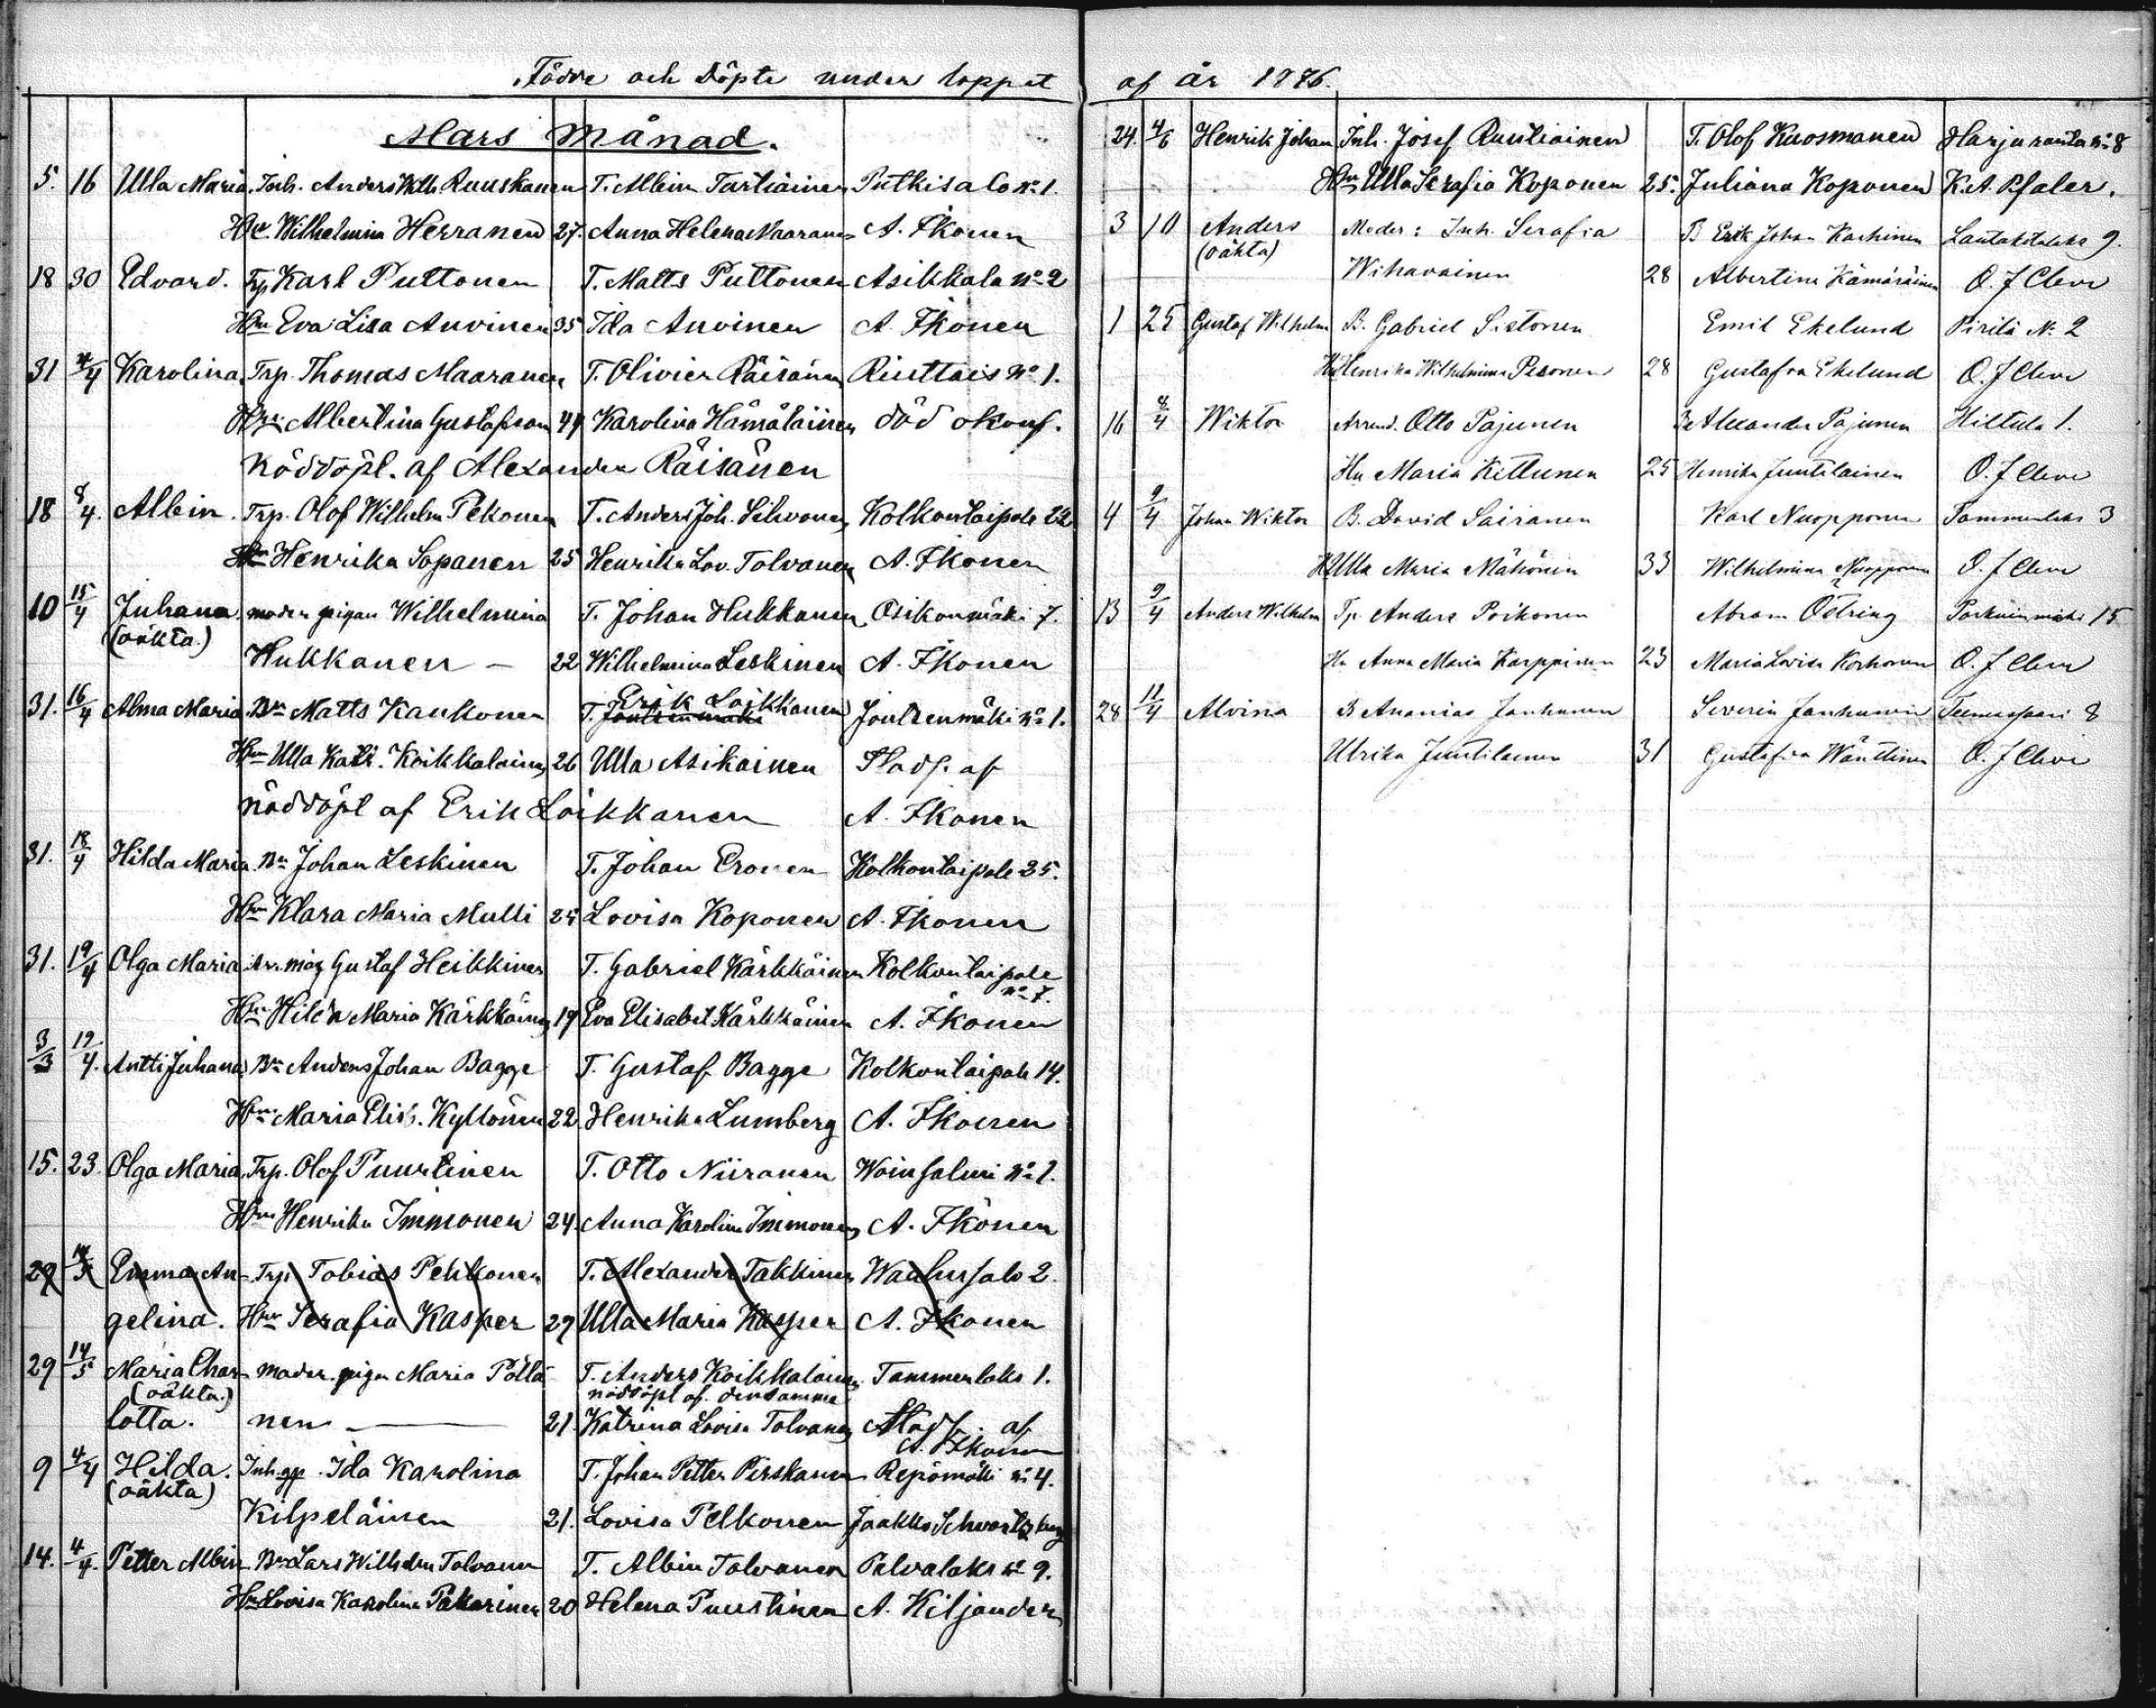 Födde och Döpte under loppet
Mars Månad.
5. 16 Ulla Maria Inh. Anders Wilh. Ruuskanen T. Albin Tartiainen Putkisalo No 1.
Hu Wilhelmina Herranen 27. Anna Helena Maaranen A. Ikonen
18 30 Edvard. Trp Karl Puttonen T. Matts Puttonen Asikkala No 2
Hu Eva Lisa Auvinen 35 Ida Auvinen A. Ikonen
31 4/4 Karolina Trp. Thomas Maaranen T. Olivier Räisänen Riuttais No 1.
Hu Albertina Gustafsson 44 Karolina Hämäläinen död okonf.
Nöddöpt. af Alexander Räisänen
18 8/4. Albin. Trp. Olof Wilhelm Pekonen T. Anders Joh. Silvonen Kolkontaipale 22
Hu Henrika Sopanen 25 Henrika Lov. Tolvanen A. Ikonen
10 15/4 Juhana moder pigan Wilhelmina T. Johan Hukkanen Osikonmäki 7.
(oäkta.)
Hukkanen — 22 Wilhelmina Leskinen A. Ikonen
31. 16/4 Alma Maria Bn Matts Kaukonen T. Erik Loikkanen Joutsenmäki No 1.
Hu Ulla Kati. Koikkalainen 26 Ulla Asikainen Stadf. af
nöddöpt af Erik Loikkanen A. Ikonen
31. 18/4 Hilda Maria Bn Johan Leskinen T. Johan Eronen Kolkontaipale 25.
Hu Klara Maria Mulli 25 Lovisa Koponen A. Ikonen
31. 19/4 Olga Maria Arr. måg Gustaf Heikkinen T. Gabriel Kärkkäinen Kolkontaipale
No 7.
Hu Hilda Maria Kärkkäinen 19 Eva Elisabet Kärkkäinen A. Ikonen
3/3 19/4. Antti Juhana Bn Anders Johan Bagge T. Gustaf Bagge Kolkontaipale 14.
Hu Maria Elis. Kyllönen 22 Henrika Lumberg A. Ikonen
15. 23. Olga Maria Trp. Olof Puurtinen T. Otto Niiranen Woinsalmi No 1.
Hu Henrika Immonen 24. Anna Karolina Immonen A. Ikonen
29 14/5 Emma An- Trp. Tobias Pelkonen T. Alexander Takkinen Waahersalo 2.
gelina. Hu Serafia Kasper 29 Ulla Maria Kasper A. Ikonen
29 14/5 Maria Char- moder. pigan Maria Pöllä- T. Anders Koikkalainen Tammenlaks 1.
(oäkta.) nöddöpt af. densamma
lotta. nen — 21. Katrina Lovisa Tolvanen Stadf. af
A. Ikonen
9 4/4 Hilda. Inh. Ida Karolina T. Johan Petter Pirskanen Repomäki No 4.
(oäkta)
Kilpeläinen 21. Lovisa Pelkonen Jaakko Schwartzberg
14. 4/4. Petter Albin Bn Lars Wilhelm Tolvanen T. Albin Tolvanen Palvalaks No 9.
Hu Lovisa Karolina Pakarinen 20 Helena Puustinen A. Kiljander
af år 1876.
24. 4/6 Henrik Johan Inh. Josef Ruotiainen T. Olof Kuosmanen Harjuranta No 8
Hu Ulla Serafia Koponen 25. Juliana Koponen K. A. Pfaler.
3 10 Anders Moder: Inh. Serafia B Erik Johan Karhinen Lautakotalaks 9.
(oäkta)
Wihavainen 28 Albertina Kämäräinen O. J Cleve
1 25 Gustaf Wilhelm B. Gabriel Sistonen Emil Ekelund Pirilä No 2
Hu Henrika Wilhelmina Pesonen 28 Gustafva Ekelund O. J Cleve
16 8/4 Wiktor Arrend. Otto Pajunen B Alexander Pajunen Hiltula 1.
Hu Maria Kettunen 25 Henrika Juntilainen O. J Cleve
4 9/4 Johan Wiktor B. David Sairanen Karl Nuopponen Tammenlaks 3
Hu Ulla Maria Mähönen 33 Wilhelmina Nuopponen O. J Cleve
13 9/4 Anders Wilhelm Tp. Anders Poikonen Abram Östring Parkuinmäki 15
Hu Anna Maria Karppinen 23 Maria Lovisa Korhonen O. J Cleve
28 11/4 Alvina B Ananias Janhunen Severin Janhunen Teemassaari 8
Ulrika Juntilainen 31 Gustafva Wänttinen O. J Cleve